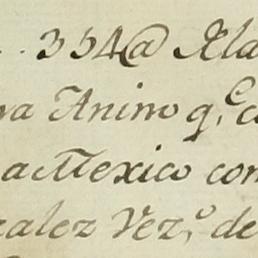 334@ Xla
va Animo q.e c
a Mexico con
zalez Vez.o de